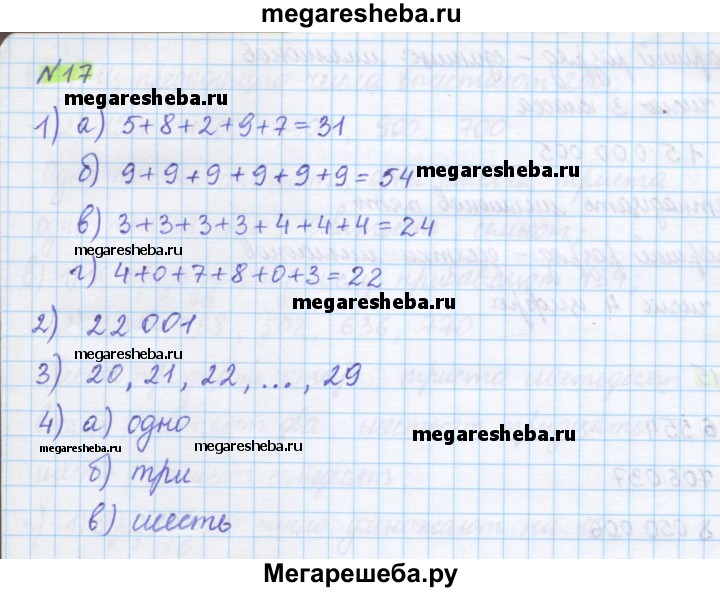 megaresheba.ru
№17
megaresheba.ru
1) а) 5+8+2+9+7=31
б) 9+9+9+9+9+9=54
megaresheba.ru
в) 3+3+3+3+4+4+4=24
megaresheba.ru
г) 4+0+7+8+0+3=22
megaresheba.ru
2) 22 001
megaresheba.ru
3) 20, 21, 22, ..., 29
4) а) одно
megaresheba.ru
megaresheba.ru
megaresheba.ru
б) три
в) шесть
Мегарешеба.ру